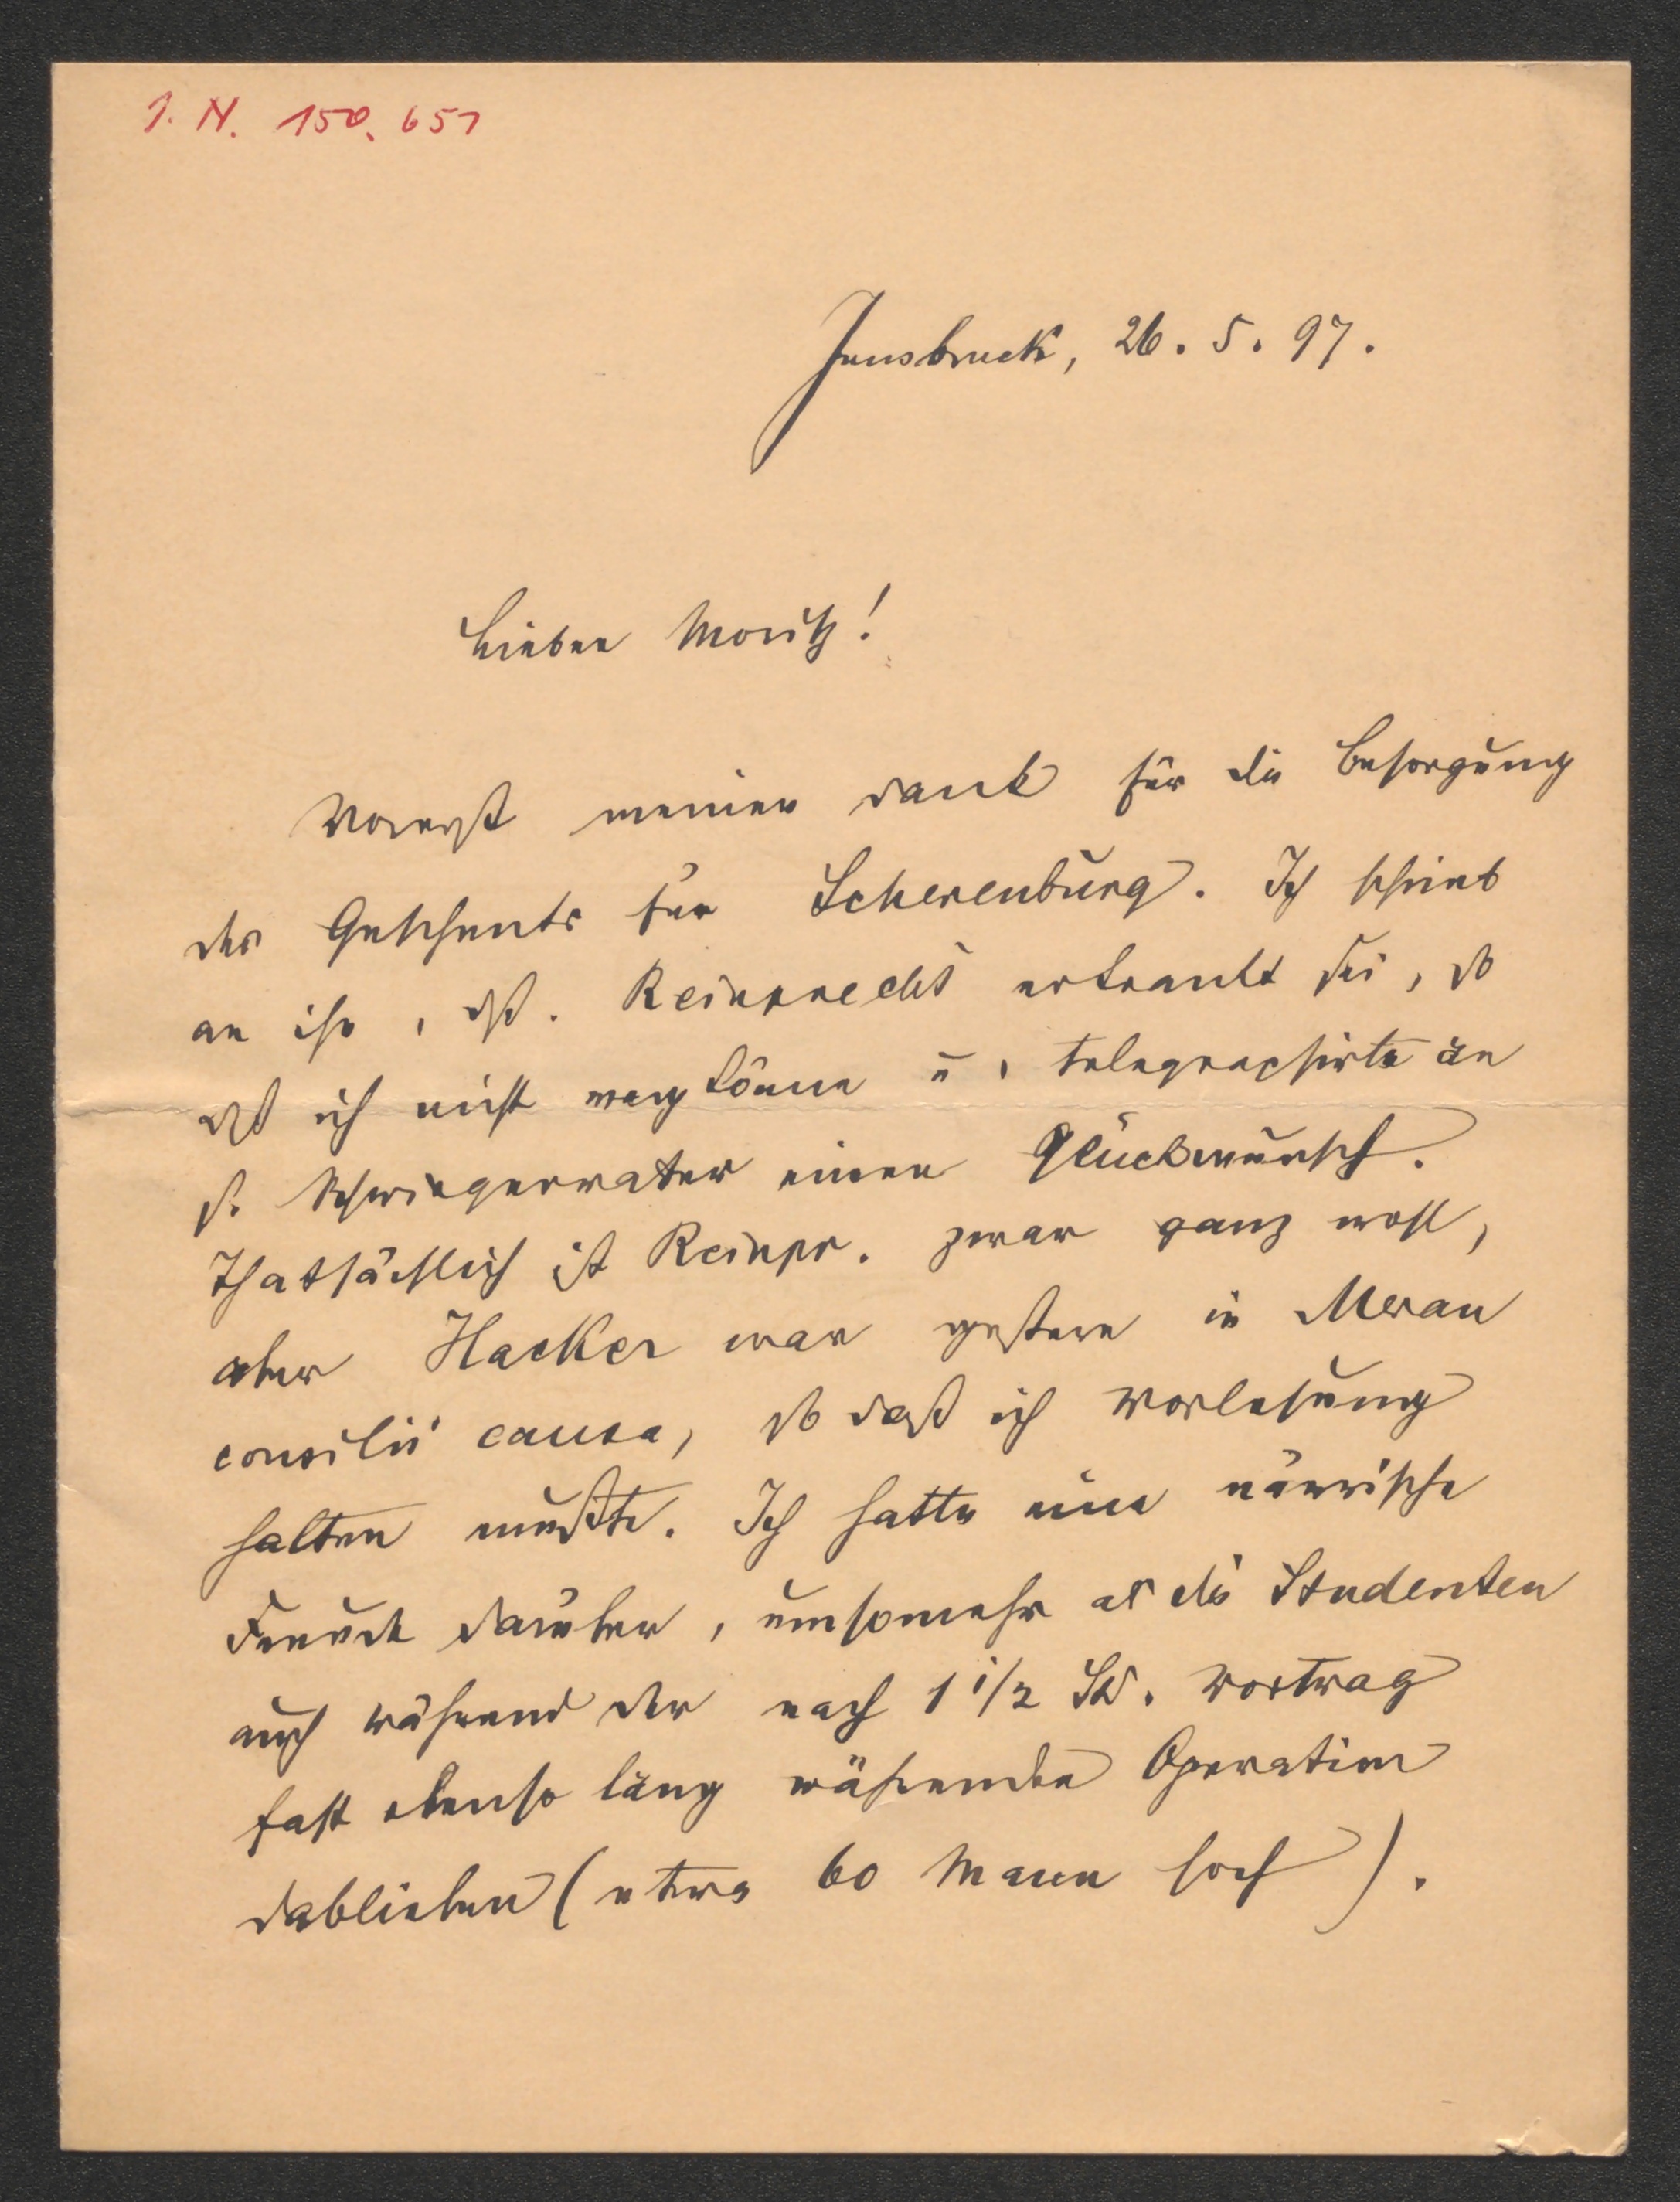 I. N. 150.651
Innsbruck, 26. 5. 97.
Lieber Moritz!
Vorerst meinen Dank für die Besorgung
des Geschenks für Scherenburg. Ich schrieb
an ihn, dß. Reinprecht erkrankt sei, so
dß ich nicht weg könne u. telegraphirte an
s. Schwiegervater einen Glückwunsch.
Thatsächlich ist Reinpr. zwar ganz wohl,
aber Hacker war gestern in Meran
consilii causa, so daß ich Vorlesung
halten mußte. Ich hatte eine närrische
Freude darüber, umsomehr als die Studenten
auch während der nach 1 1/2 St. Vortrag
fast ebenso lang währenden Operation
dablieben (etwa 60 Mann hoch).